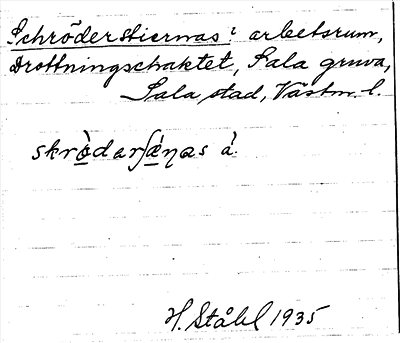 Schröderstiernas: arbetsrum,
Drottningschaktet, Sala gruva,
Sala stad, Västm. l.
skrò̲darʃǽ̲ṇas á.
H. Ståhl 1935